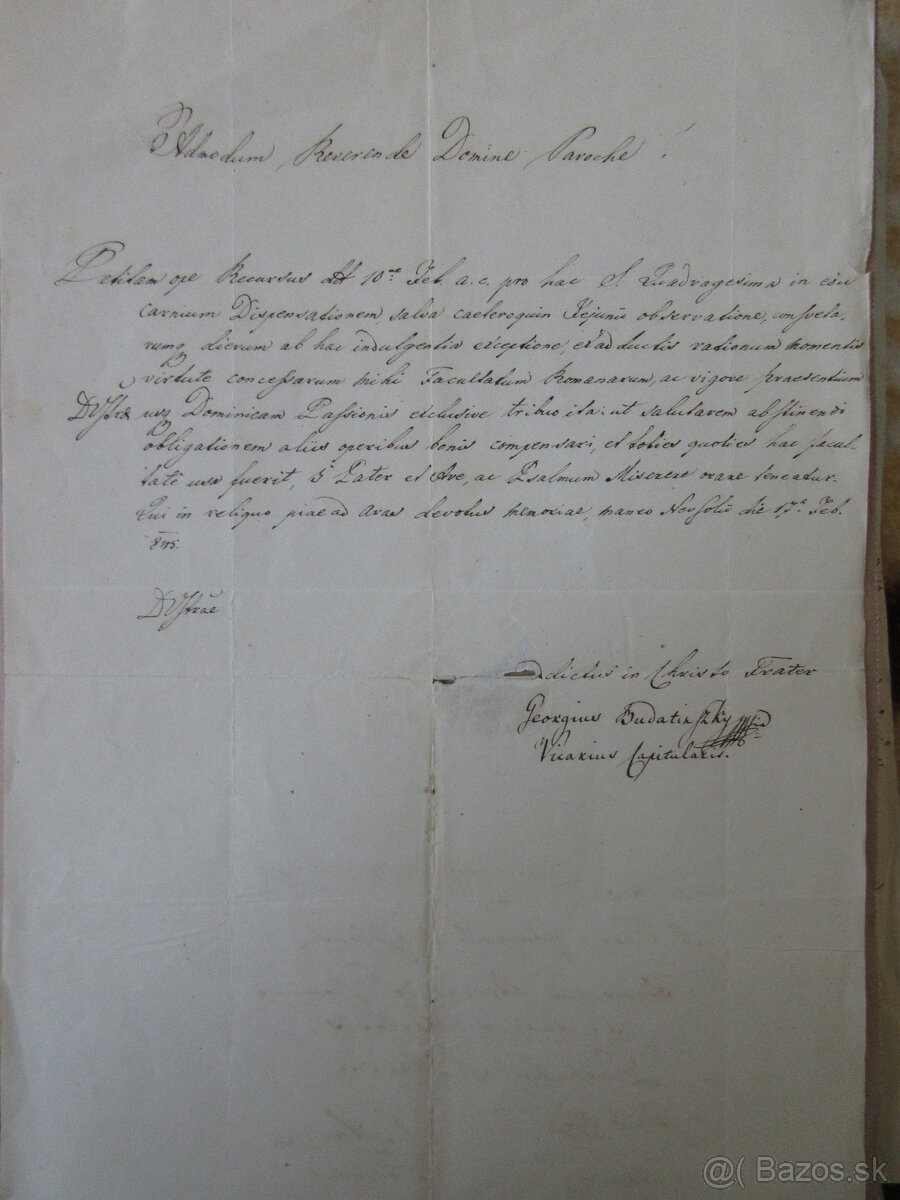 Admodum Reverende Domine Paroche!
Petitam ope Recursus 10ae Feb. a. c. pro hac S. Quadragesima in esu
carnium Dispensationem salva caeteroquin Jejunii observatione, consveta-
rumq dierum ab hac indulgentia exceptione, ex adductis rationum momentis
virtute concessarum mihi Facultatum Romanarum, ac vigore praesentium
DVstrae usq Dominicam Passionis exclusive tribuo ita: ut salutarem abstinendi
obligationem aliis operibus bonis compensari, et toties quoties hac facul-
tate usa fuerit, 5 Pater et Ave, ac Psalmum Miserere orare teneatur.
Qui in reliquo piae ad Aras devotus memoriae, maneo Neosolii die 17a Feb.
845.
DVstrae
Addictus in Christo Frater
Georgius Budatinszky
Vicarius Capitularis.
@( Bazos.sk